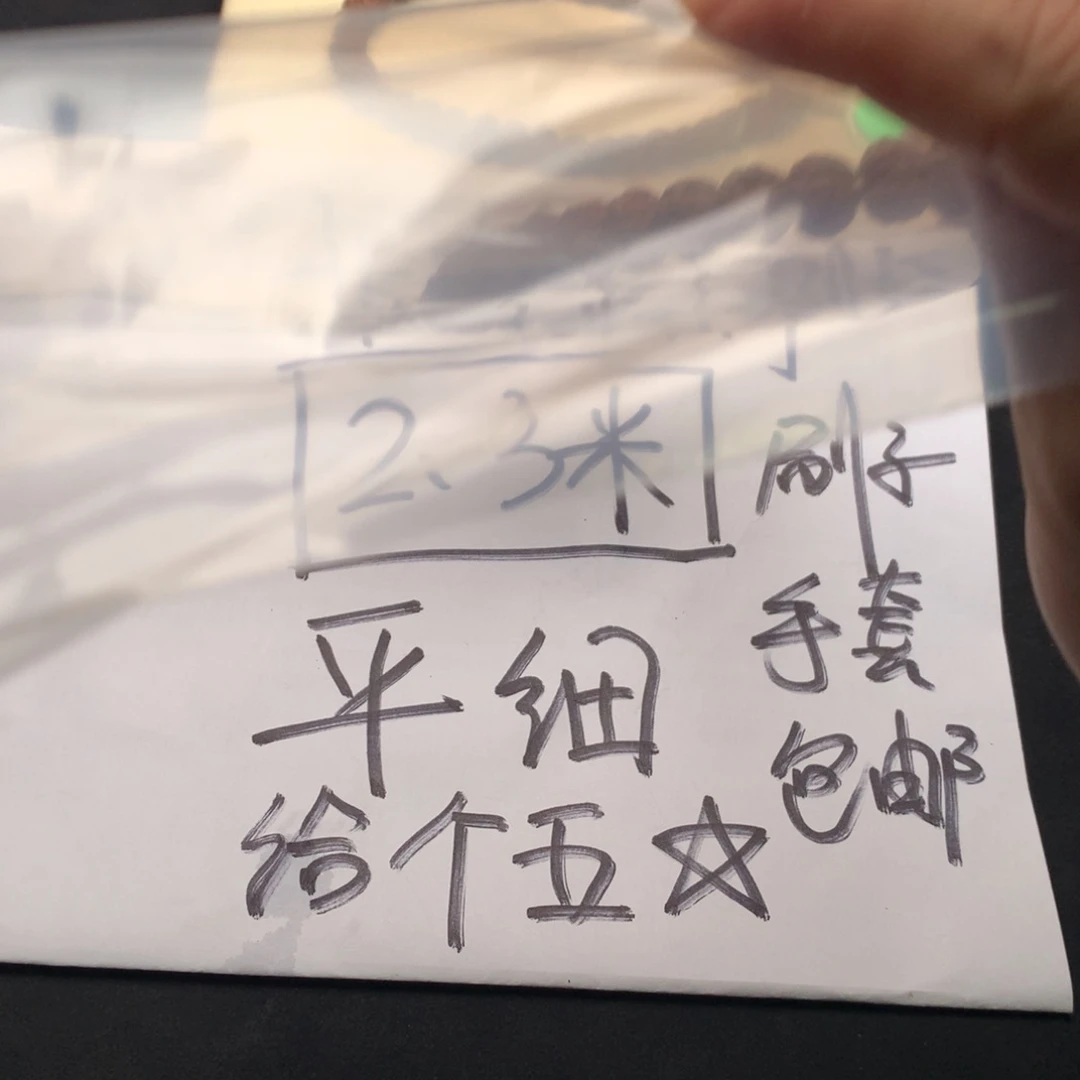 2、3米
刷子
平 细
手套
给个五☆
包邮